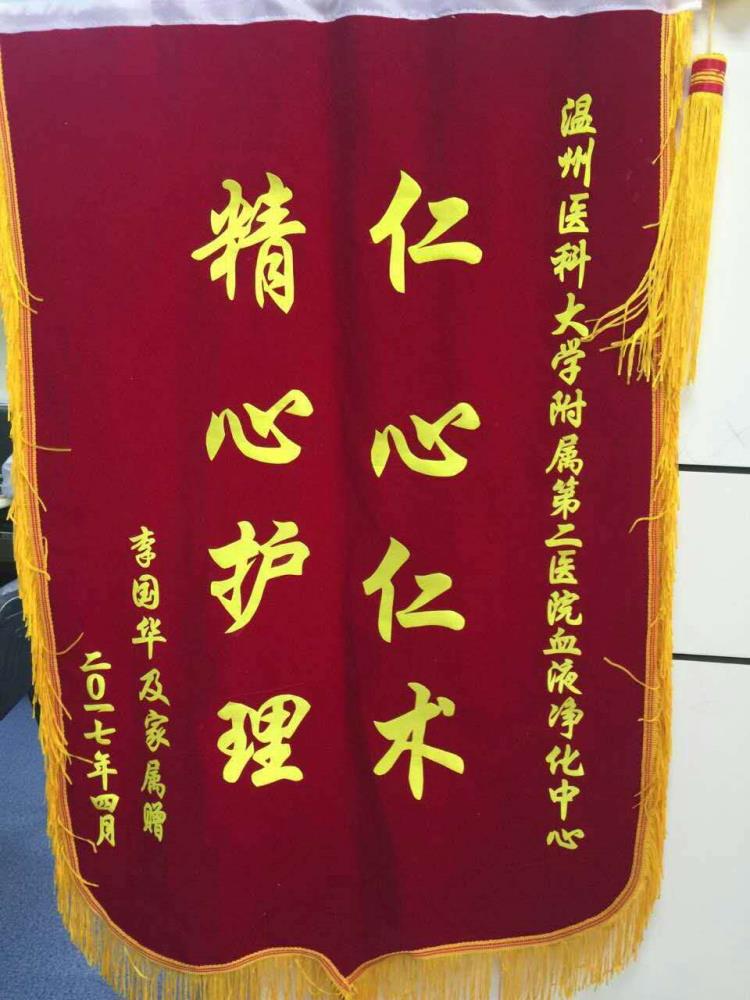 温州医科大学附属第二医院血液净化中心
仁心仁术
精心护理
李国华及家属赠
二〇一七年四月